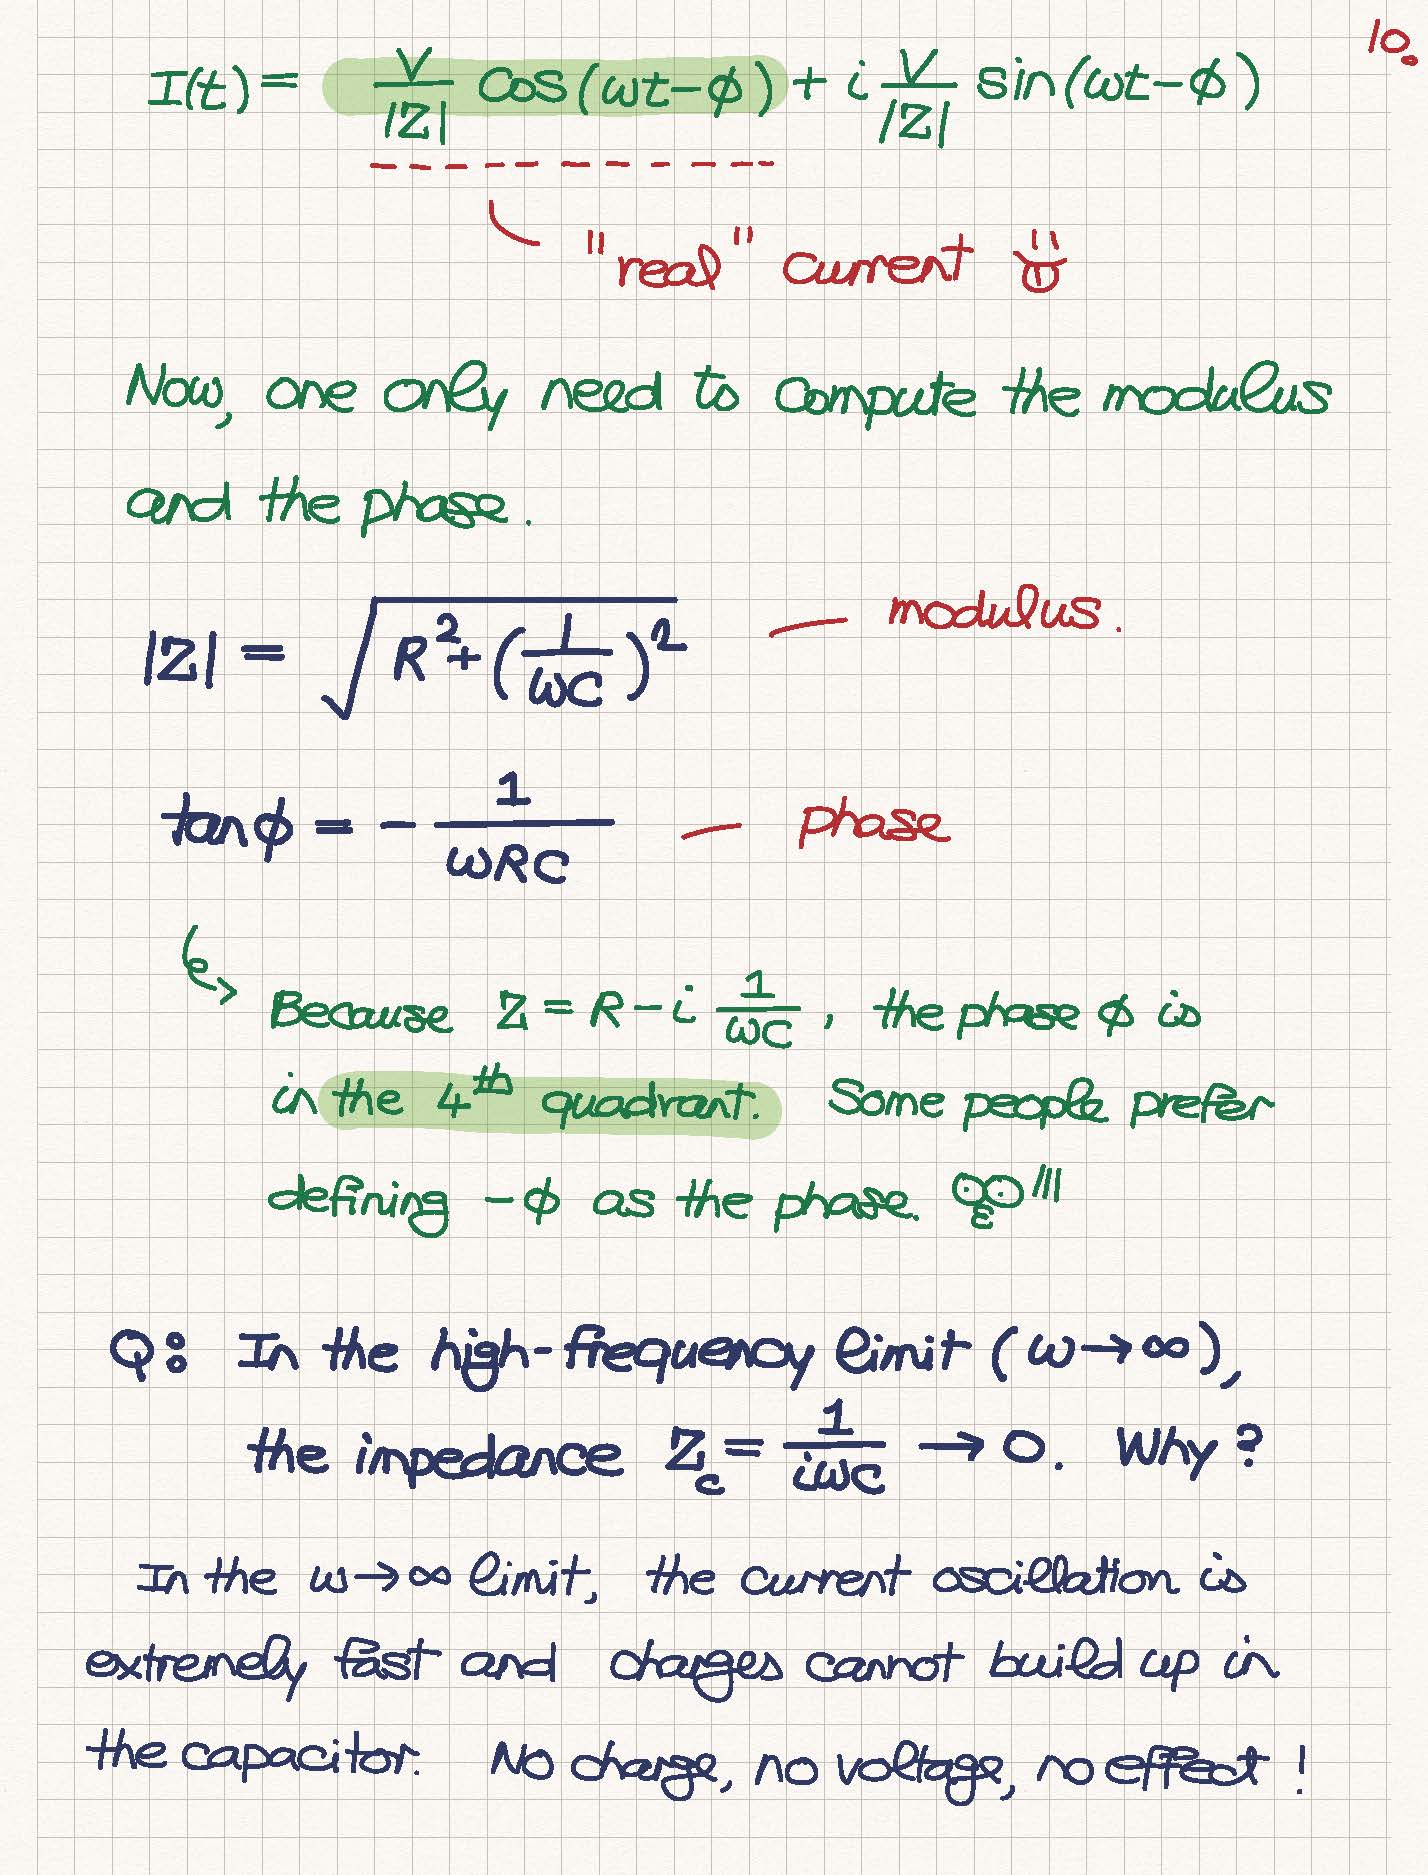 10.
I(t) = V/|Z| cos(ωt-φ) + i V/|Z| sin(ωt-φ)
"real" current
Now, one only need to compute the modulus
and the phase.
|Z| = √(R²+(1/ωC)²) — modulus.
tanφ = - 1/ωRC — phase
Because Z = R - i 1/ωC, the phase φ is
in the 4th quadrant. Some people prefer
defining -φ as the phase.
Q: In the high-frequency limit (ω→∞),
the impedance Zc = 1/iωC → 0. Why?
In the ω→∞ limit, the current oscillation is
extremely fast and charges cannot build up in
the capacitor. No charge, no voltage, no effect!